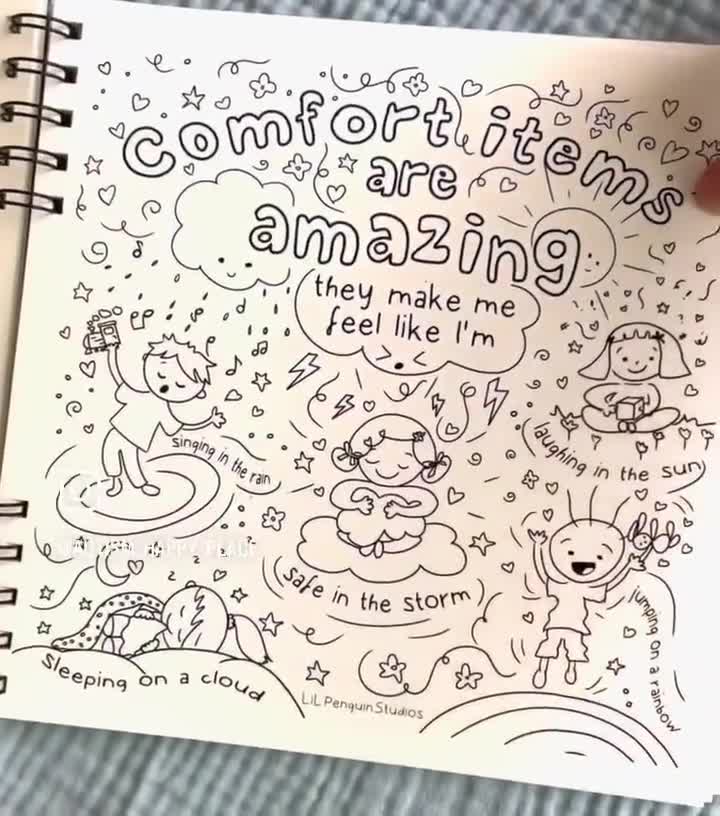 Comfort items
are
amazing
they make me
feel like I'm
singing in the rain
laughing in the sun
safe in the storm
jumping on a rainbow
Sleeping on a cloud
LiL Penguin Studios